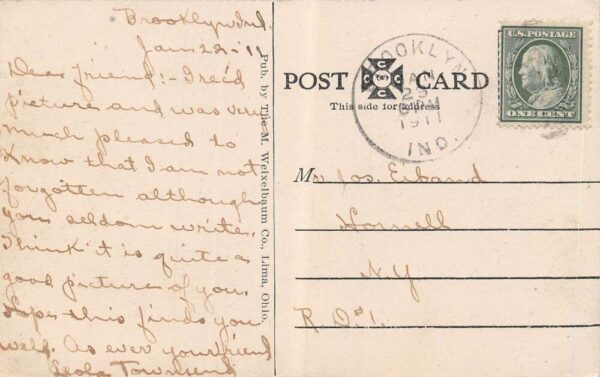 Brooklyn Ind.
Jan 22-11
Dear friend:- I rec'd
picture and was very
much pleased to
know that I am not
forgotten although
you seldom write.
Think it is quite a
good picture of you.
Hope this finds you
well. As ever your friend
Leola Townsend
Pub. by The M. Weixelbaum Co., Lima, Ohio.
POST CARD
This side for address
BROOKLYN
JAN
23
1911
IND.
U.S. POSTAGE
ONE CENT
Mr Jos. Eiband
Hornell
N.Y
R D #1.